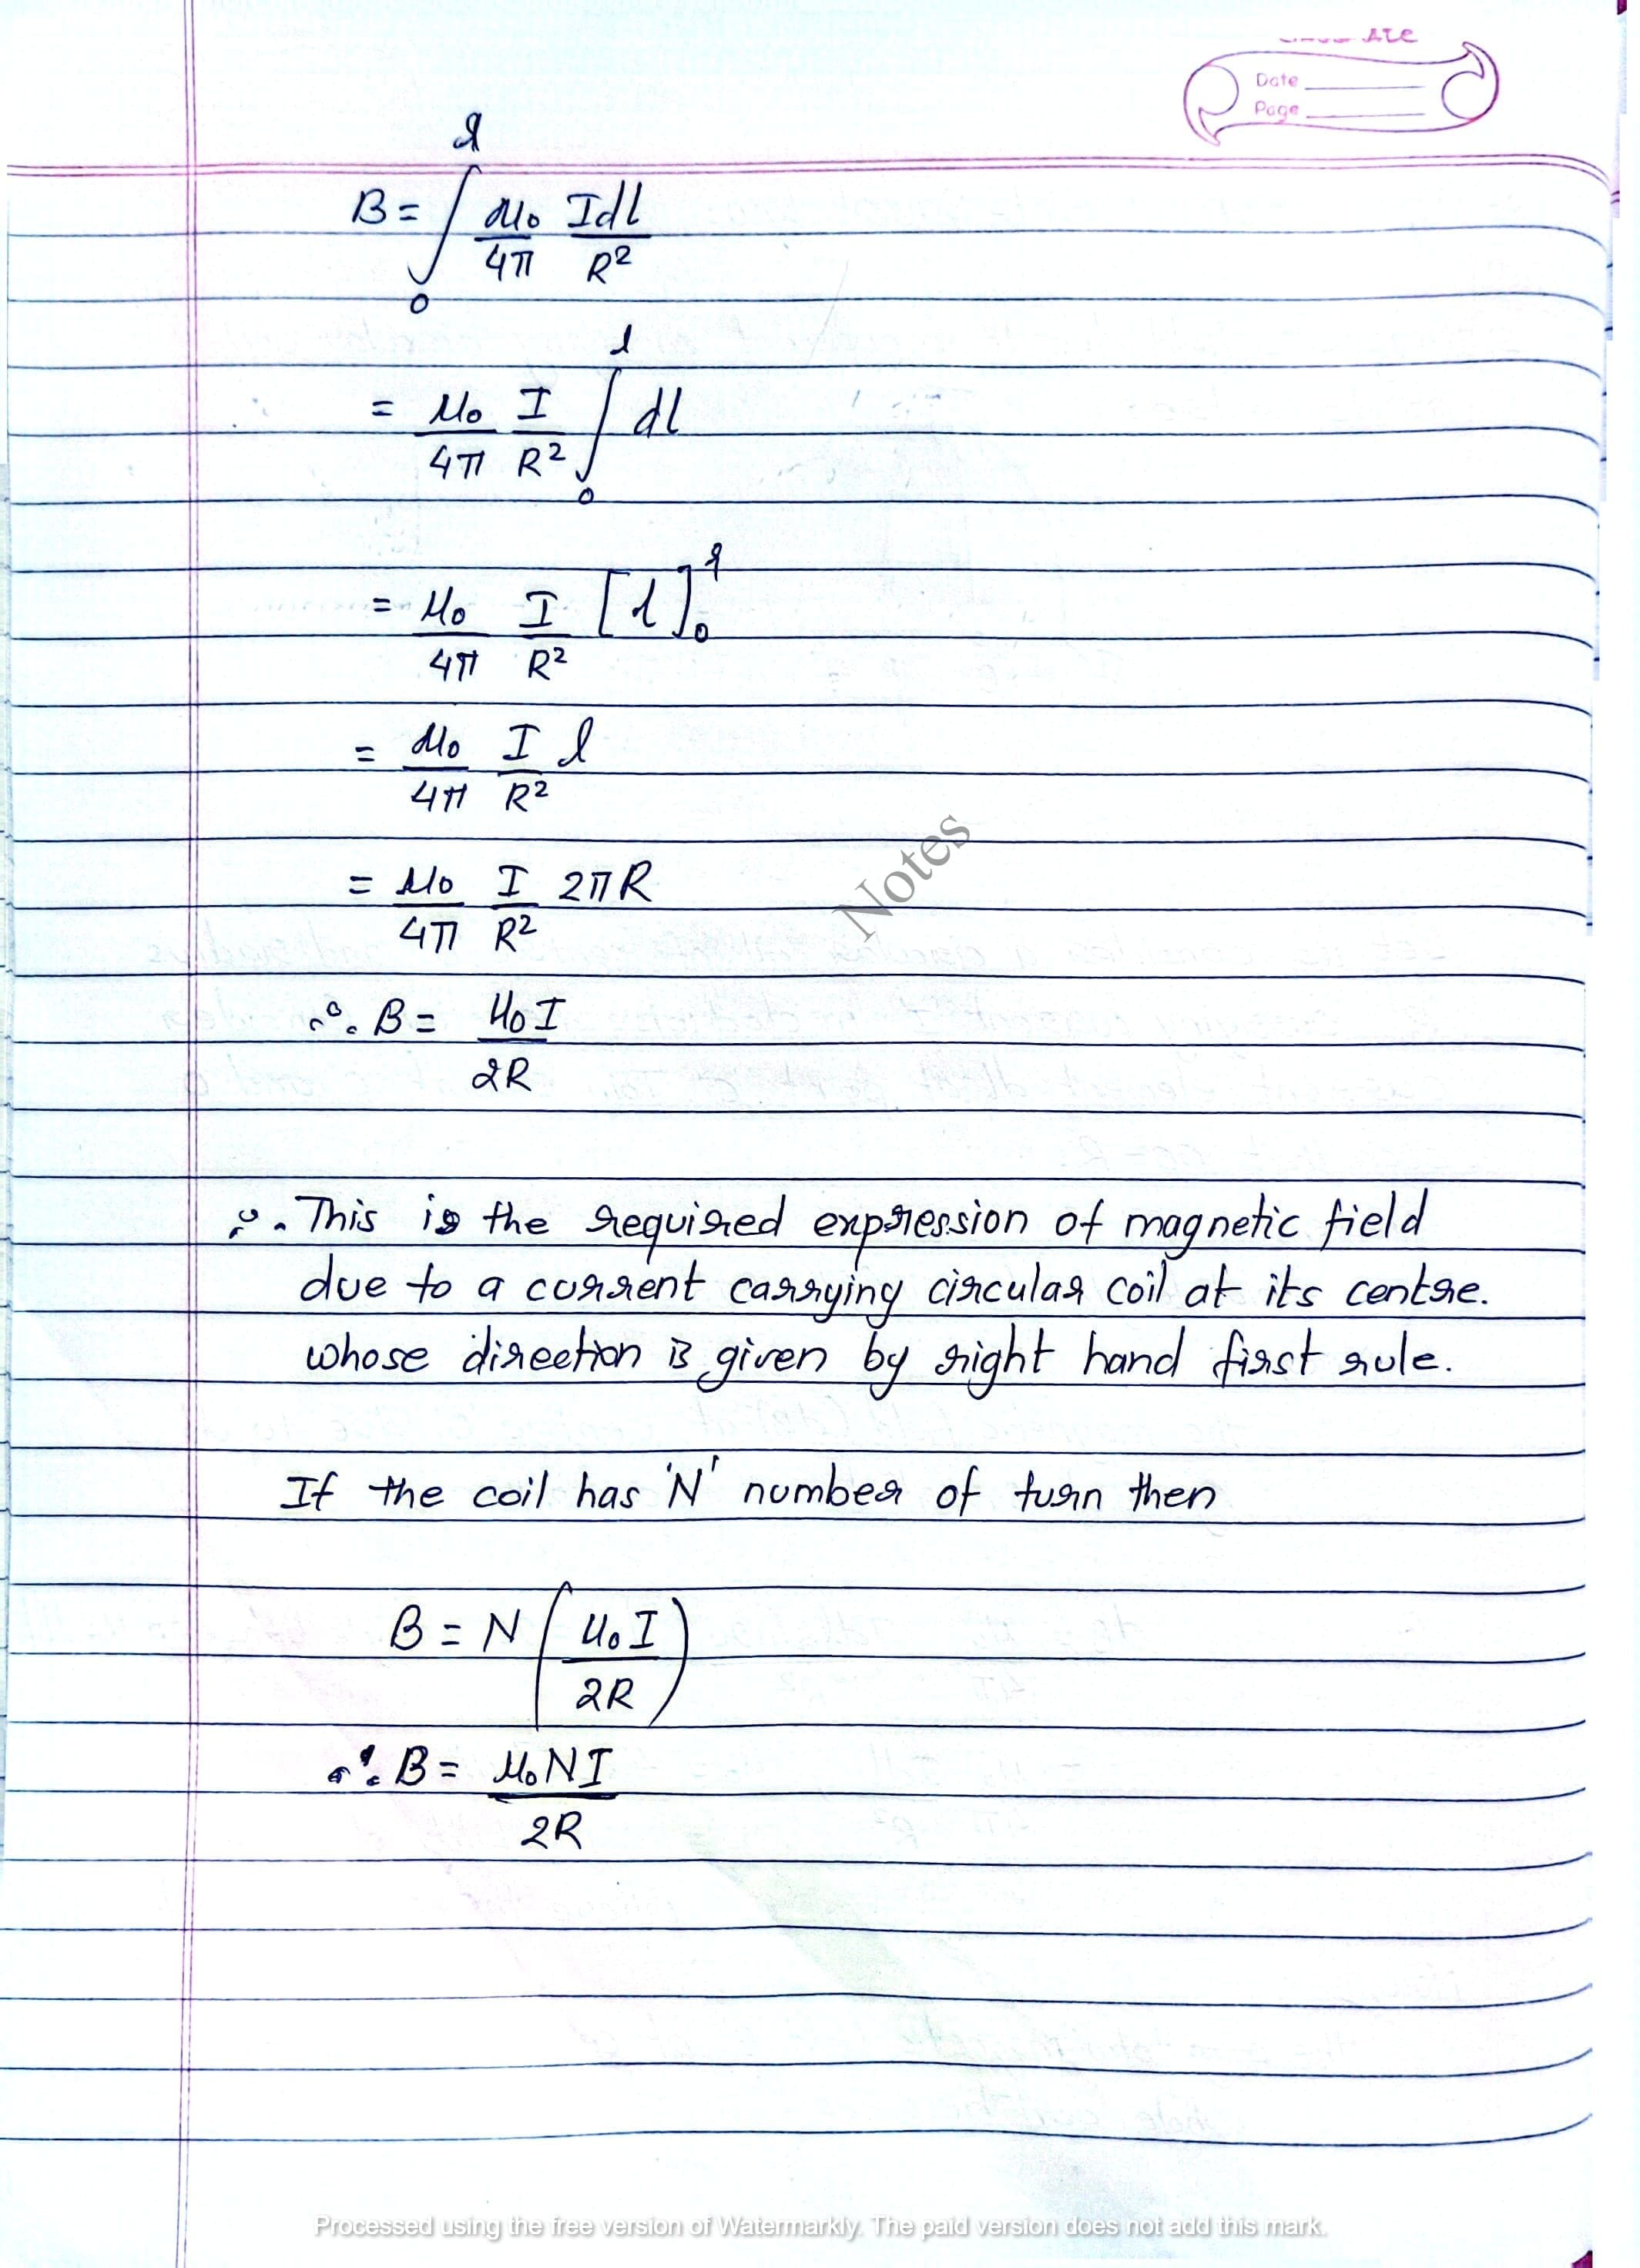 Date
Page
B = ∫₀ˡ μ₀/4π Idl/R²
= μ₀/4π I/R² ∫₀ˡ dl
= μ₀/4π I/R² [l]₀ˡ
= μ₀/4π I/R² l
= μ₀/4π I/R² 2πR
Notes
∴ B = μ₀I/2R
∴ This is the required expression of magnetic field
due to a current carrying circular coil at its centre.
whose direction is given by right hand first rule.
If the coil has 'N' number of turn then
B = N(μ₀I/2R)
∴ B = μ₀NI/2R
Processed using the free version of Watermarkly. The paid version does not add this mark.